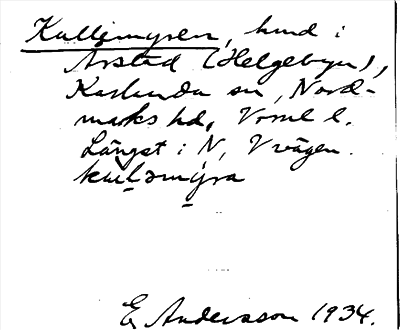 Kullemyren, hmd i
Årstad (Helgebyn),
Karlanda sn, Nord-
marks hd, Vrml l.
Längst i N, V vägen.
kuləmy̵ra
E Andersson 1934.